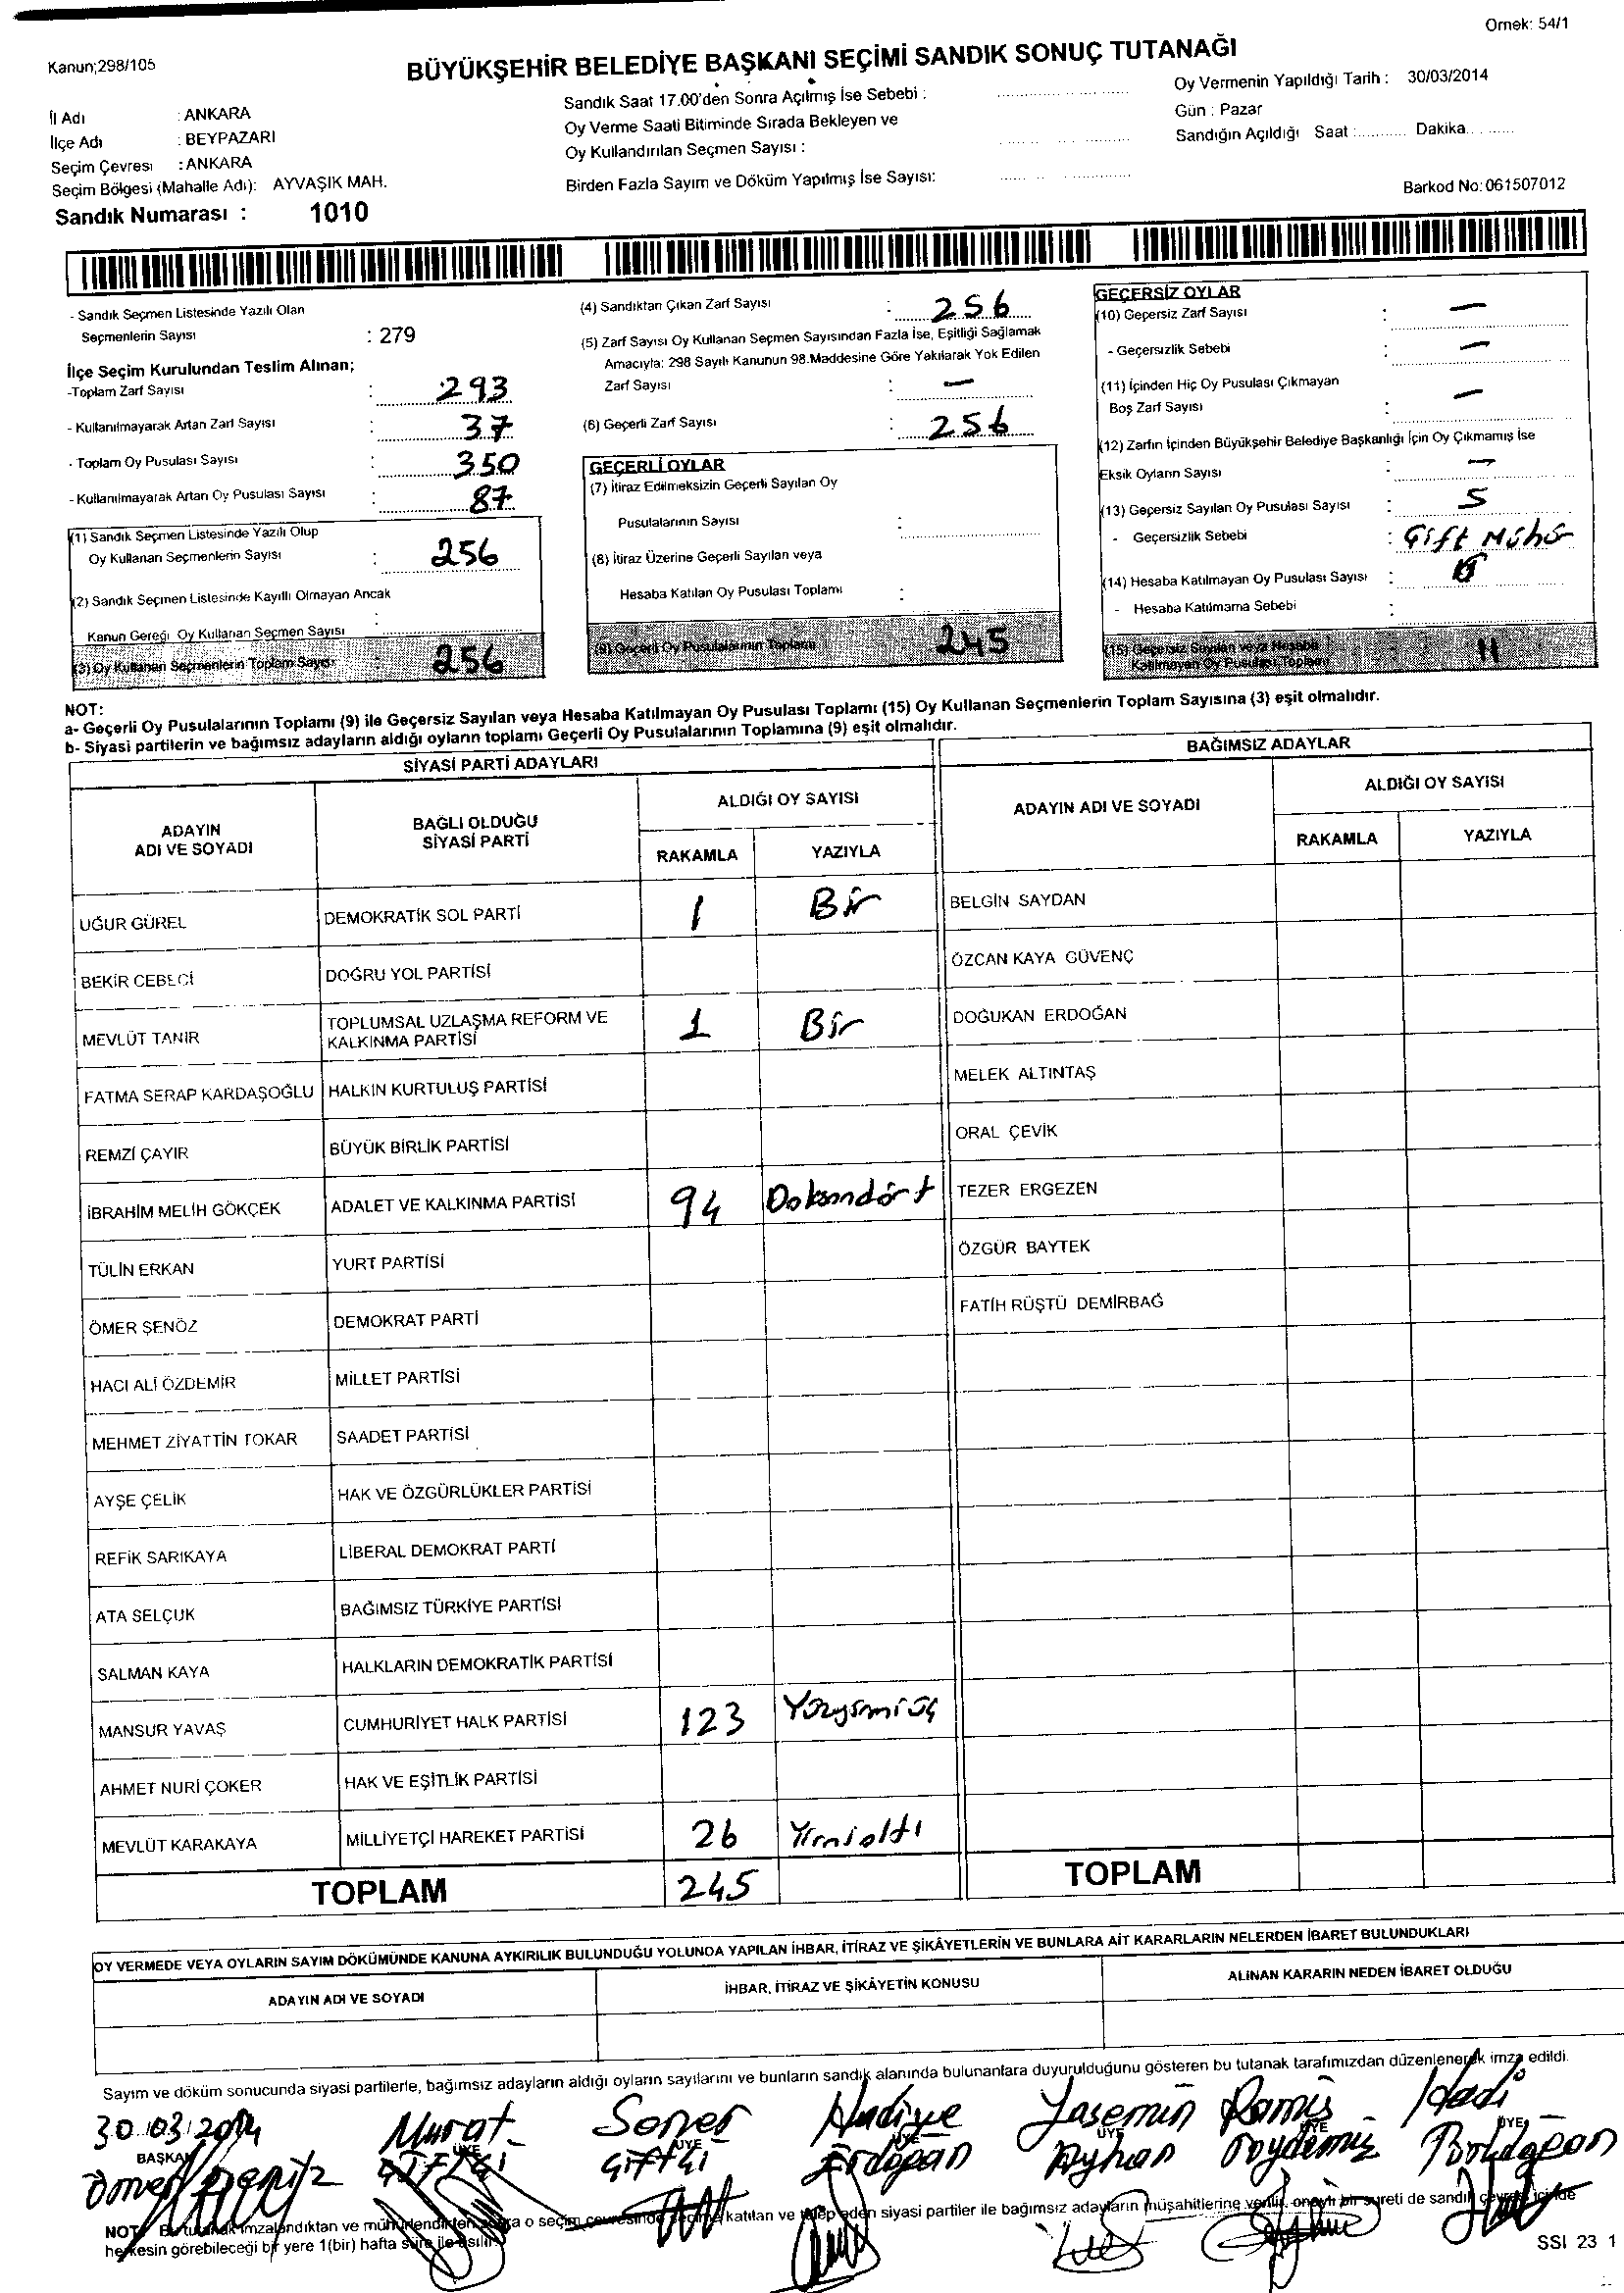 Örnek: 54/1
Kanun;298/105
BÜYÜKŞEHİR BELEDİYE BAŞKANI SEÇİMİ SANDIK SONUÇ TUTANAĞI
İl Adı : ANKARA
İlçe Adı : BEYPAZARI
Seçim Çevresi : ANKARA
Seçim Bölgesi (Mahalle Adı): AYVAŞIK MAH.
Sandık Numarası : 1010
Sandık Saat 17.00'den Sonra Açılmış İse Sebebi :
Oy Verme Saati Bitiminde Sırada Bekleyen ve
Oy Kullandırılan Seçmen Sayısı :
Birden Fazla Sayım ve Döküm Yapılmış İse Sayısı:
Oy Vermenin Yapıldığı Tarih : 30/03/2014
Gün : Pazar
Sandığın Açıldığı Saat :........... Dakika...........
Barkod No: 061507012
- Sandık Seçmen Listesinde Yazılı Olan
Seçmenlerin Sayısı : 279
İlçe Seçim Kurulundan Teslim Alınan;
-Toplam Zarf Sayısı : 293
- Kullanılmayarak Artan Zarf Sayısı : 37
- Toplam Oy Pusulası Sayısı : 350
- Kullanılmayarak Artan Oy Pusulası Sayısı : 87
(1) Sandık Seçmen Listesinde Yazılı Olup
Oy Kullanan Seçmenlerin Sayısı : 256
(2) Sandık Seçmen Listesinde Kayıtlı Olmayan Ancak
Kanun Gereği Oy Kullanan Seçmen Sayısı :
(3) Oy Kullanan Seçmenlerin Toplam Sayısı : 256
(4) Sandıktan Çıkan Zarf Sayısı : 256
(5) Zarf Sayısı Oy Kullanan Seçmen Sayısından Fazla İse, Eşitliği Sağlamak
Amacıyla: 298 Sayılı Kanunun 98.Maddesine Göre Yakılarak Yok Edilen
Zarf Sayısı : —
(6) Geçerli Zarf Sayısı : 256
GEÇERLİ OYLAR
(7) İtiraz Edilmeksizin Geçerli Sayılan Oy
Pusulalarının Sayısı :
(8) İtiraz Üzerine Geçerli Sayılan veya
Hesaba Katılan Oy Pusulası Toplamı :
(9) Geçerli Oy Pusulalarının Toplamı 245
GEÇERSİZ OYLAR
(10) Geçersiz Zarf Sayısı : —
- Geçersizlik Sebebi : —
(11) İçinden Hiç Oy Pusulası Çıkmayan
Boş Zarf Sayısı : —
(12) Zarfın İçinden Büyükşehir Belediye Başkanlığı İçin Oy Çıkmamış İse
Eksik Oyların Sayısı : —
(13) Geçersiz Sayılan Oy Pusulası Sayısı : 5
- Geçersizlik Sebebi : Çift Mühür
(14) Hesaba Katılmayan Oy Pusulası Sayısı :
- Hesaba Katılmama Sebebi :
(15) Geçersiz Sayılan veya Hesaba
Katılmayan Oy Pusulası Toplamı 11
NOT:
a- Geçerli Oy Pusulalarının Toplamı (9) ile Geçersiz Sayılan veya Hesaba Katılmayan Oy Pusulası Toplamı (15) Oy Kullanan Seçmenlerin Toplam Sayısına (3) eşit olmalıdır.
b- Siyasi partilerin ve bağımsız adayların aldığı oyların toplamı Geçerli Oy Pusulalarının Toplamına (9) eşit olmalıdır.
SİYASİ PARTİ ADAYLARI
ADAYIN
ADI VE SOYADI
BAĞLI OLDUĞU
SİYASİ PARTİ
ALDIĞI OY SAYISI
RAKAMLA YAZIYLA
UĞUR GÜREL DEMOKRATİK SOL PARTİ 1 Bir
BEKİR CEBECİ DOĞRU YOL PARTİSİ
MEVLÜT TANIR TOPLUMSAL UZLAŞMA REFORM VE
KALKINMA PARTİSİ 1 Bir
FATMA SERAP KARDAŞOĞLU HALKIN KURTULUŞ PARTİSİ
REMZİ ÇAYIR BÜYÜK BİRLİK PARTİSİ
İBRAHİM MELİH GÖKÇEK ADALET VE KALKINMA PARTİSİ 94 Doksandört
TÜLİN ERKAN YURT PARTİSİ
ÖMER ŞENÖZ DEMOKRAT PARTİ
HACI ALİ ÖZDEMİR MİLLET PARTİSİ
MEHMET ZİYATTİN TOKAR SAADET PARTİSİ
AYŞE ÇELİK HAK VE ÖZGÜRLÜKLER PARTİSİ
REFİK SARIKAYA LİBERAL DEMOKRAT PARTİ
ATA SELÇUK BAĞIMSIZ TÜRKİYE PARTİSİ
SALMAN KAYA HALKLARIN DEMOKRATİK PARTİSİ
MANSUR YAVAŞ CUMHURİYET HALK PARTİSİ 123 Yüzyirmiüç
AHMET NURİ ÇOKER HAK VE EŞİTLİK PARTİSİ
MEVLÜT KARAKAYA MİLLİYETÇİ HAREKET PARTİSİ 26 Yirmialtı
TOPLAM 245
BAĞIMSIZ ADAYLAR
ADAYIN ADI VE SOYADI
ALDIĞI OY SAYISI
RAKAMLA YAZIYLA
BELGİN SAYDAN
ÖZCAN KAYA GÜVENÇ
DOĞUKAN ERDOĞAN
MELEK ALTINTAŞ
ORAL ÇEVİK
TEZER ERGEZEN
ÖZGÜR BAYTEK
FATİH RÜŞTÜ DEMİRBAĞ
TOPLAM
OY VERMEDE VEYA OYLARIN SAYIM DÖKÜMÜNDE KANUNA AYKIRILIK BULUNDUĞU YOLUNDA YAPILAN İHBAR, İTİRAZ VE ŞİKÂYETLERİN VE BUNLARA AİT KARARLARIN NELERDEN İBARET BULUNDUKLARI
ADAYIN ADI VE SOYADI
İHBAR, İTİRAZ VE ŞİKÂYETİN KONUSU
ALINAN KARARIN NEDEN İBARET OLDUĞU
Sayım ve döküm sonucunda siyasi partilerle, bağımsız adayların aldığı oyların sayılarını ve bunların sandık alanında bulunanlara duyurulduğunu gösteren bu tutanak tarafımızdan düzenlenerek imza edildi.
30.03.2014 Murat Soner Hadiye Yasemin Ramis Hadi
BAŞKAN ÜYE ÜYE ÜYE ÜYE ÜYE ÜYE
Ömer Çiftçi Çiftçi Erdoğan Ayhan
NOT: Bu tutanak imzalandıktan ve mühürlendikten sonra o seçim çevresinde seçime katılan ve talep eden siyasi partiler ile bağımsız adayların müşahitlerine verilir, onaylı bir sureti de sandık çevresi içinde
herkesin görebileceği bir yere 1(bir) hafta süre ile asılır.
SSI 23 1